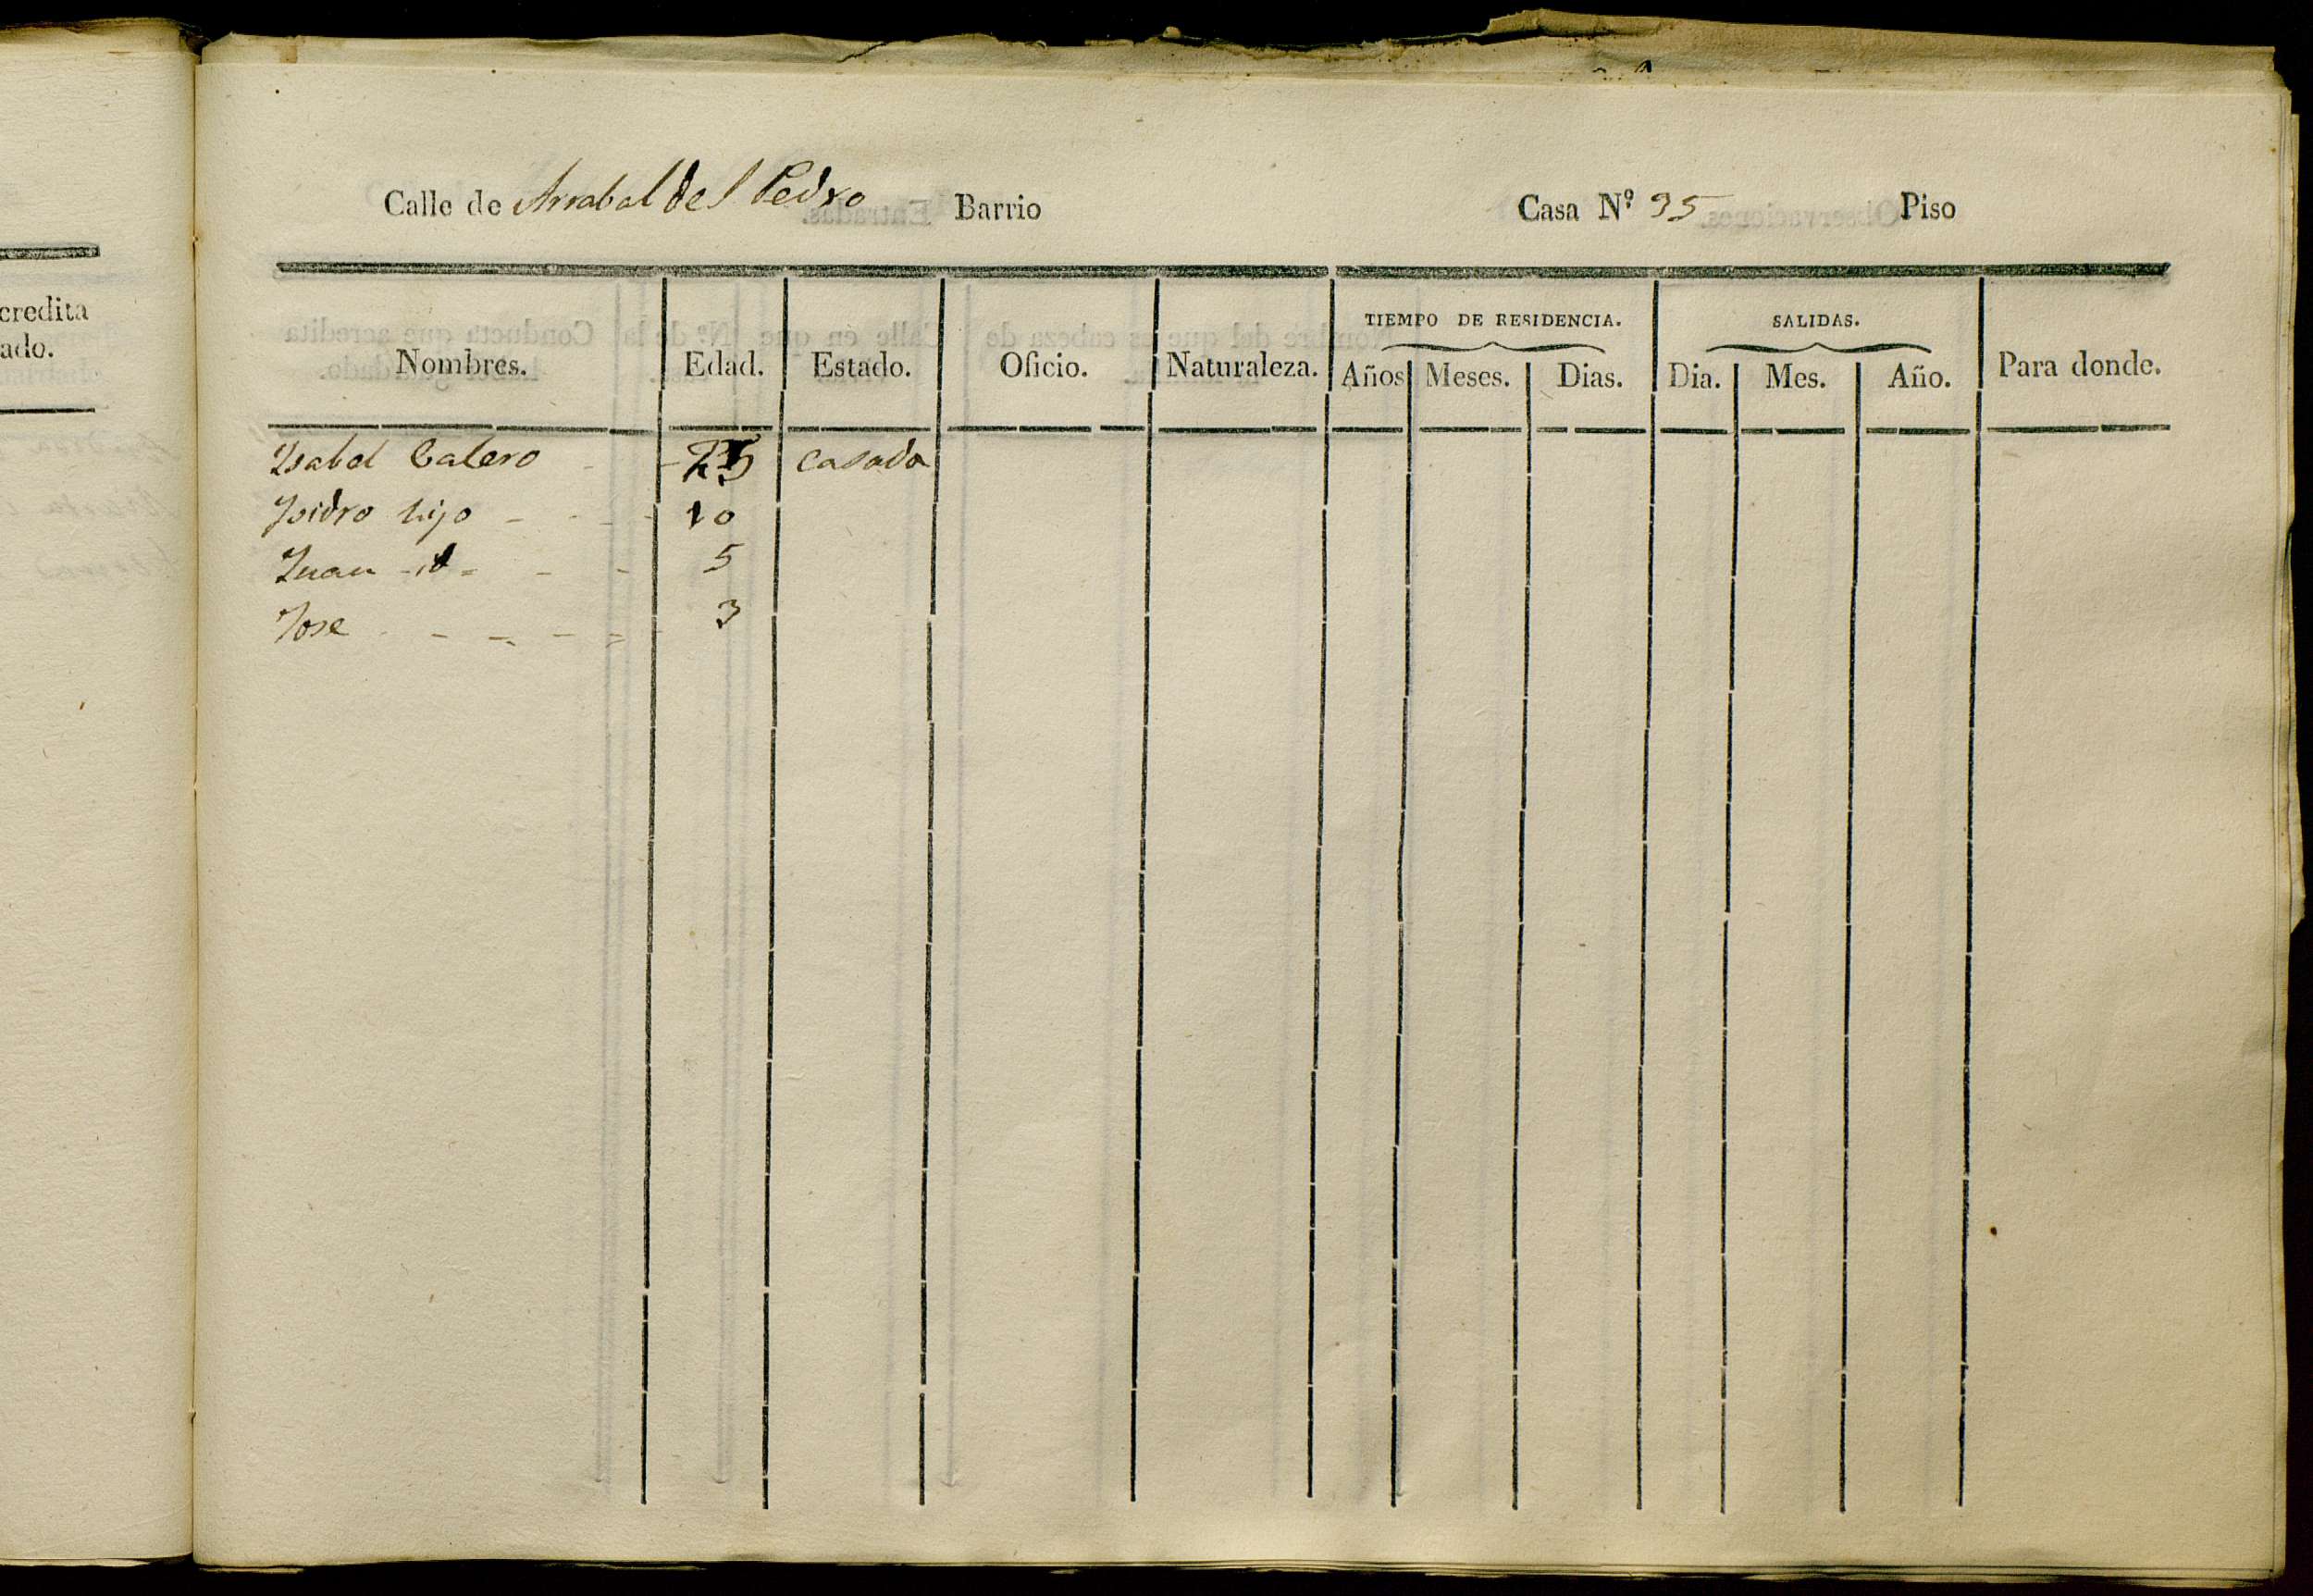 Calle de Arrabal del Pedro Barrio Casa Nº 35 Piso
credita
ado.
TIEMPO DE RESIDENCIA. SALIDAS.
Nombres. Edad. Estado. Oficio. Naturaleza. Años Meses. Dias. Dia. Mes. Año. Para donde.
Ysabel Calero - - 25 casada
Isidro hijo - - - - 10
Juan - id - - - 5
Jose - - - - - - 3